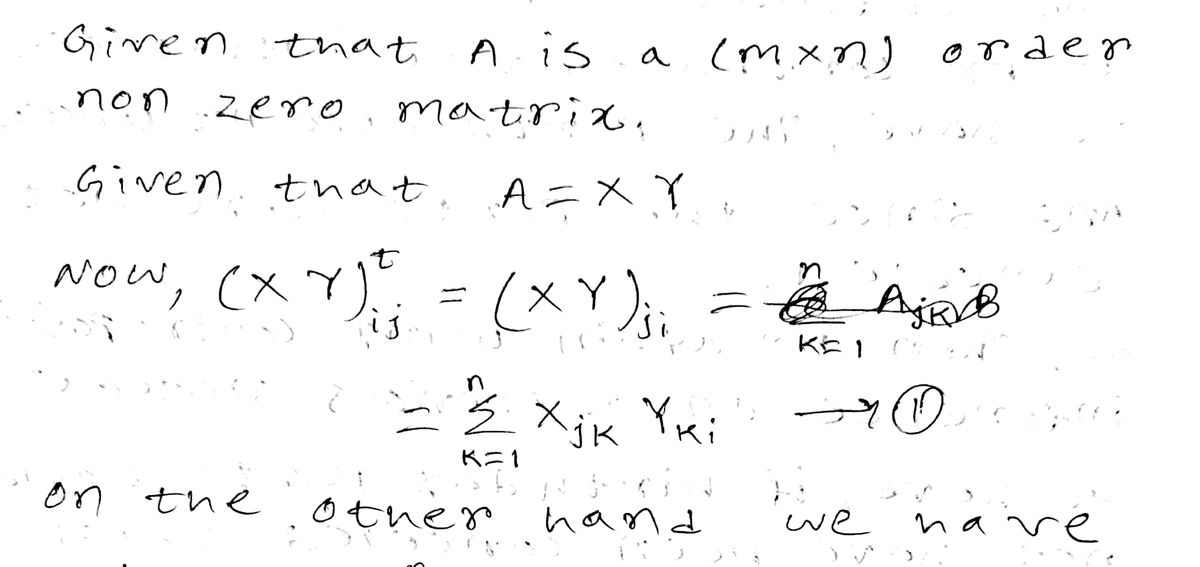 Given that A is a (m×n) order
non zero matrix.
Given that A = X Y
Now, (X Y)ᵗᵢⱼ = (X Y)ⱼᵢ =
= Σⁿₖ₌₁ Xⱼₖ Yₖᵢ → ①
on the other hand we have